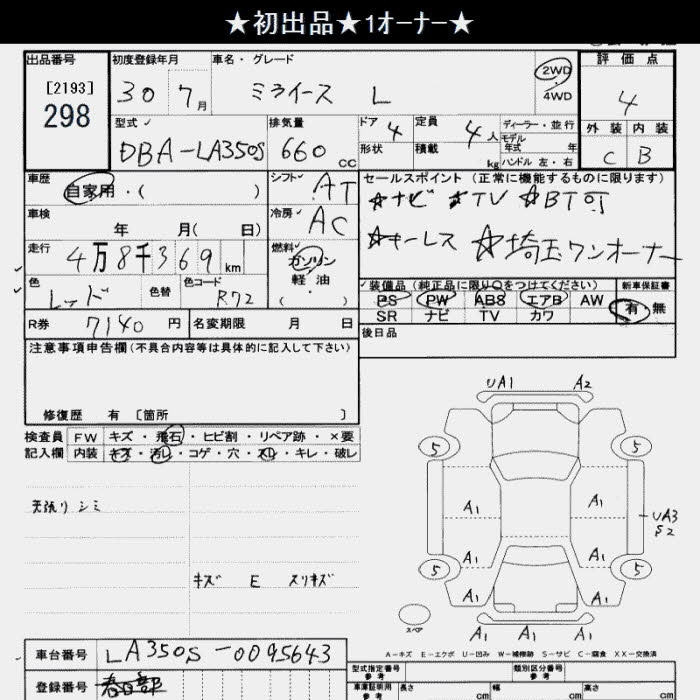 ★初出品★1オーナー★
出品番号
[2193]
298
初度登録年月
30 7月
車名・グレード
ミライース L
2WD
4WD
評価点
4
外装 内装
C B
型式
DBA-LA350S
排気量
660 cc
ドア 4
形状
定員 4人
積載 kg
ディーラー・並行
モデル年式 年
ハンドル 左・右
車歴
自家用・( )
シフト AT
車検
年 月( 日)
冷房 AC
走行
4万8千369km
燃料
ガソリン
軽油
( )
色
レッド
色替
色コード
R72
R券 7140 円
名変期限 月 日
セールスポイント(正常に機能するものに限ります)
☆ナビ ☆TV ☆BT可
☆キーレス ☆埼玉ワンオーナー
装備品(純正品に限り○をつけてください)
PS PW ABS エアB AW
SR ナビ TV カワ
新車保証書
有 無
後日品
注意事項申告欄(不具合内容等は具体的に記入して下さい)
修復歴 有 〔箇所 〕
検査員 FW キズ・飛石・ヒビ割・リペア跡・×要
記入欄 内装 キズ・汚レ・コゲ・穴・スレ・キレ・破レ
天張り シミ
キズ E スリキズ
UA1 A2
5 5
A1 A1
UA3
S2
A1 A1
5 5
A1 A1
スペア
A1 A1 A1
A-キズ E-エクボ U-凹み W-補修跡 S-サビ C-腐食 XX-交換済
車台番号 LA350S-0095643
登録番号 春日部
型式指定番号
参考
類別区分番号
参考
車庫証明用
参考
長さ cm
幅 cm
高さ cm